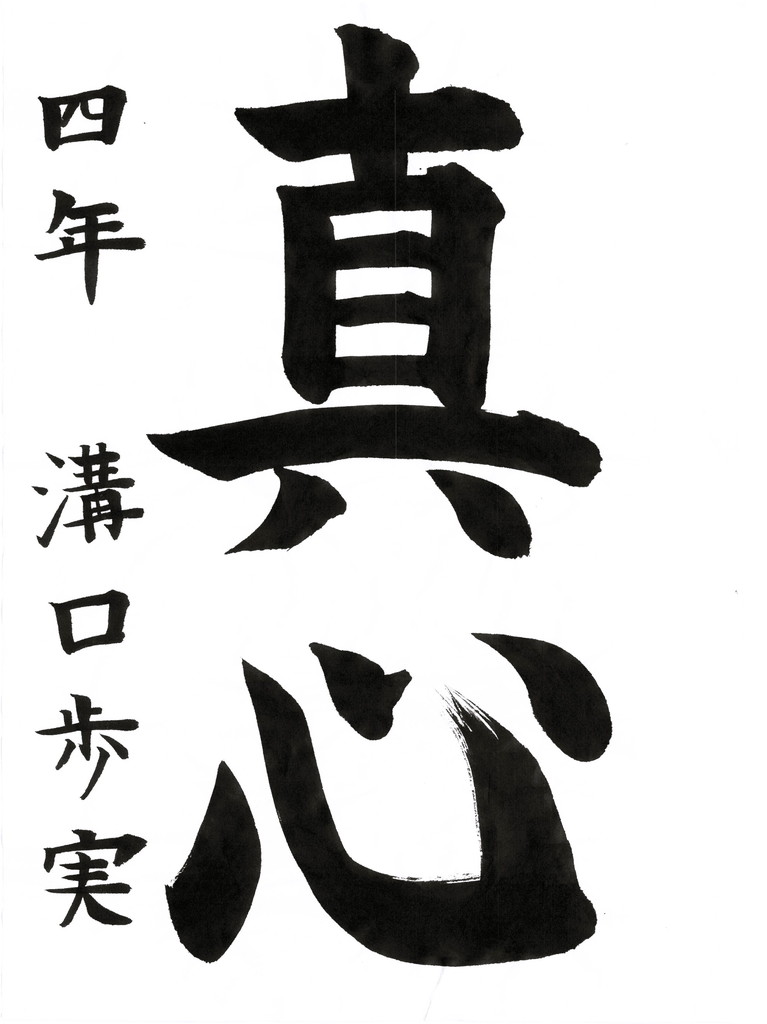 真心
四年 溝口歩実